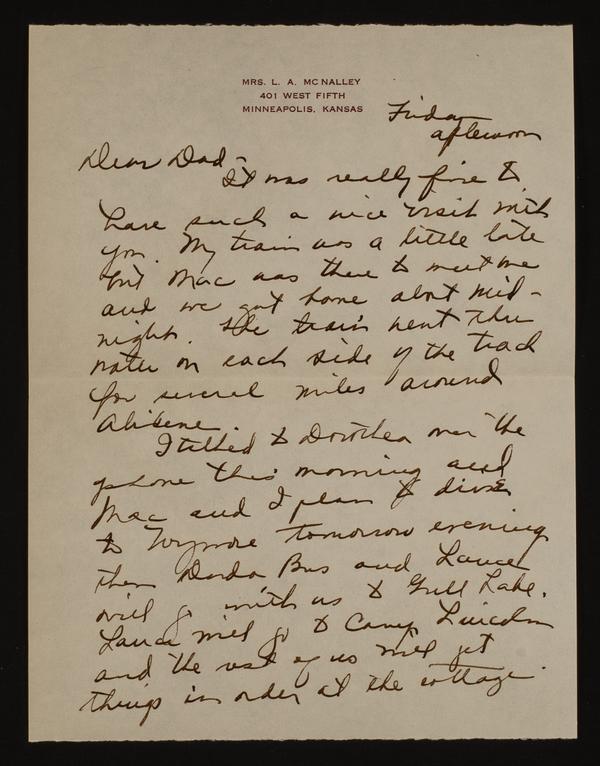 MRS. L. A. MCNALLEY
401 WEST FIFTH
MINNEAPOLIS, KANSAS
Friday
afternoon
Dear Dad -
It was really fine to
have such a nice visit with
you. My train was a little late
but Mac was there to meet me
and we got home about mid-
night. The train went thru
water on each side of the track
for several miles around
Abilene.
I talked to Dorothea over the
phone this morning and
Mac and I plan to drive
to Wymore tomorrow evening
then Bus and Lance
will go with us to Gull Lake.
Lance will go to Camp Lincoln
and the rest of us will get
things in order at the cottage.